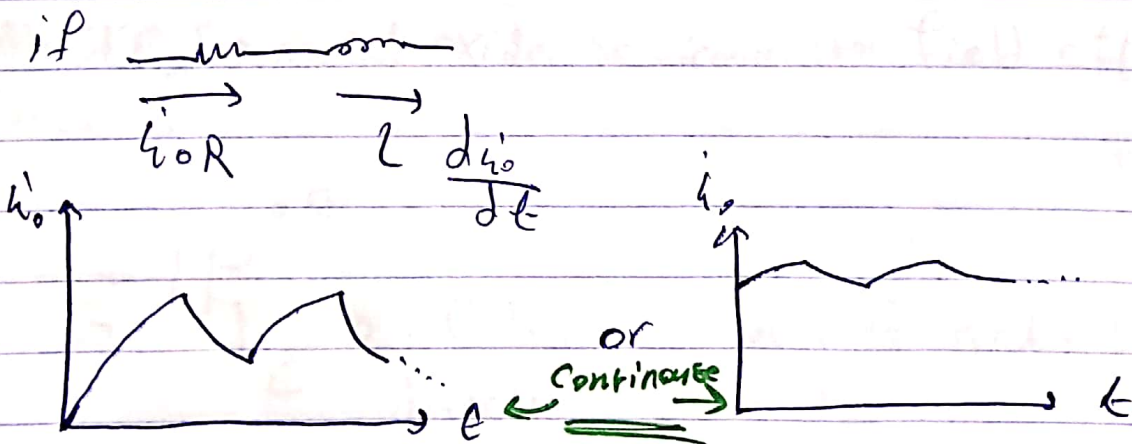 if
i₀R L di₀/dt
i₀ i₀
or
Continoute
t t